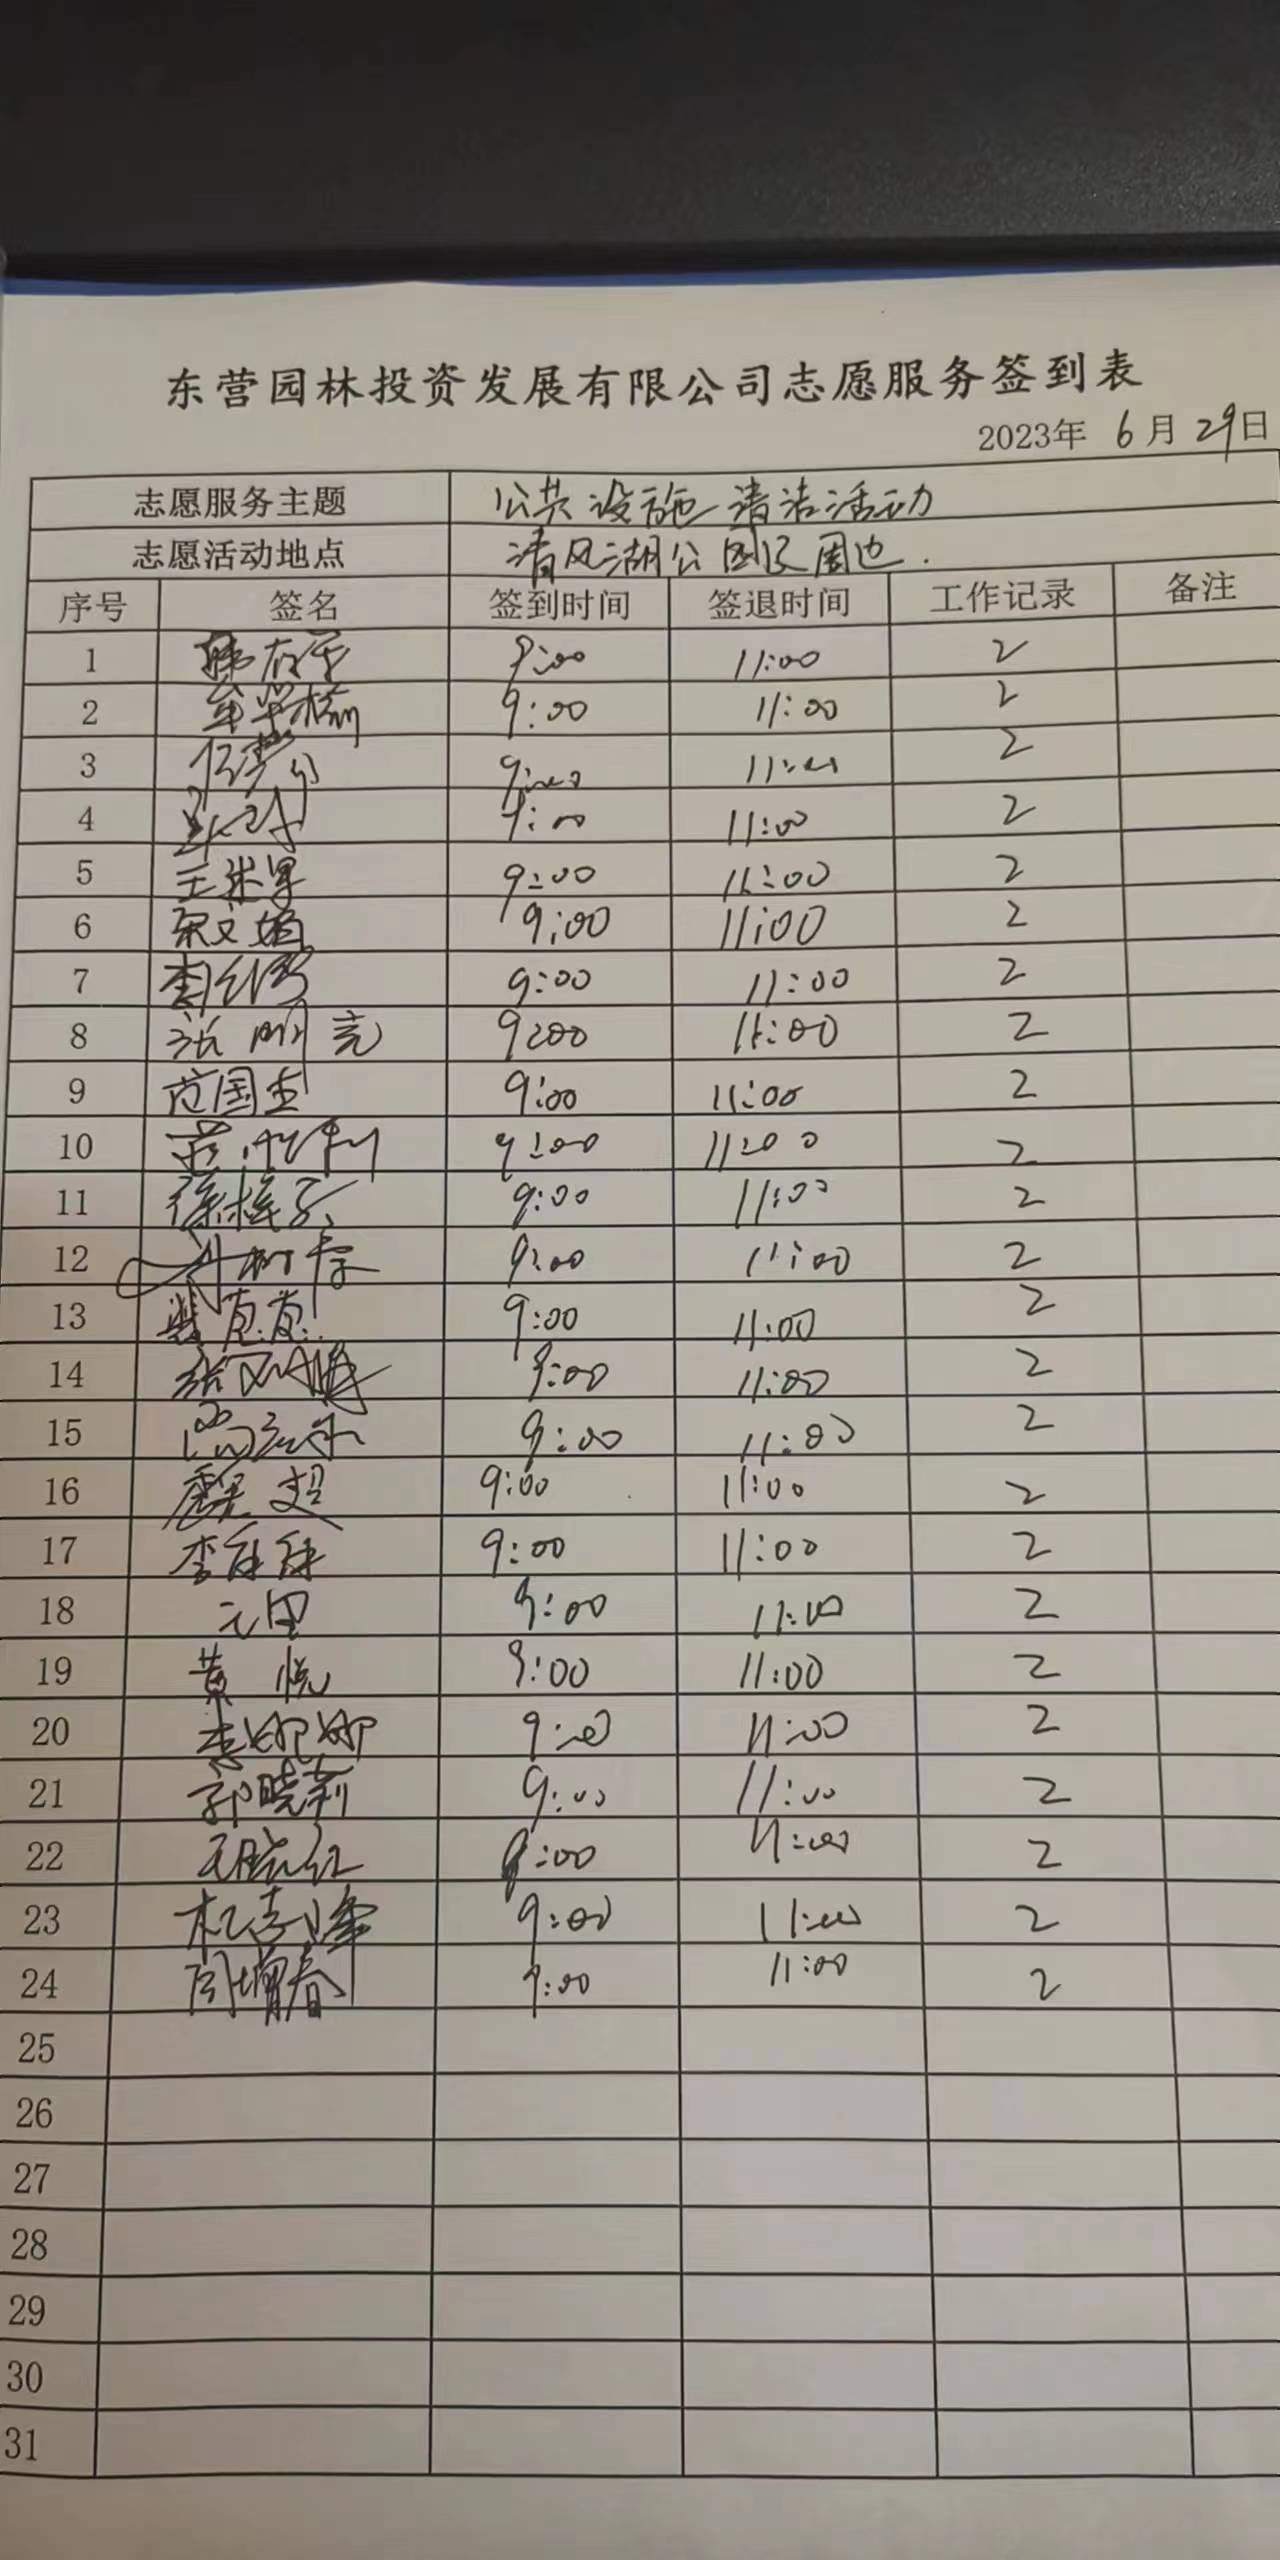 东营园林投资发展有限公司志愿服务签到表
2023年 6月29日
志愿服务主题 公共设施清洁活动
志愿活动地点 清风湖公园及周边.
序号 签名 签到时间 签退时间 工作记录 备注
1 9:00 11:00 2
2 9:00 11:00 2
3 9:00 11:00 2
4 9:00 11:00 2
5 9:00 11:00 2
6 9:00 11:00 2
7 9:00 11:00 2
8 张明亮 9:00 11:00 2
9 范国杰 9:00 11:00 2
10 9:00 11:00 2
11 9:00 11:00 2
12 9:00 11:00 2
13 9:00 11:00 2
14 9:00 11:00 2
15 9:00 11:00 2
16 9:00 11:00 2
17 9:00 11:00 2
18 9:00 11:00 2
19 黄悦 9:00 11:00 2
20 李娜娜 9:00 11:00 2
21 郭晓莉 9:00 11:00 2
22 王晓红 9:00 11:00 2
23 杜志峰 9:00 11:00 2
24 周增春 9:00 11:00 2
25
26
27
28
29
30
31